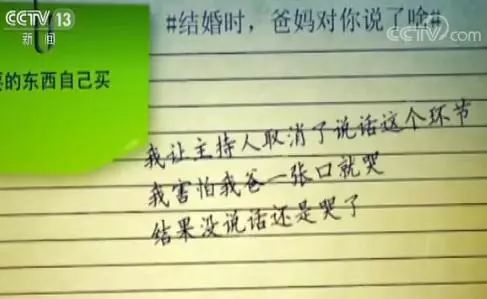 CCTV 13
新闻
#结婚时，爸妈对你说了啥#
CCTV.com
的东西自己买
我让主持人取消了说话这个环节
我害怕我爸一张口就哭
结果没说话还是哭了